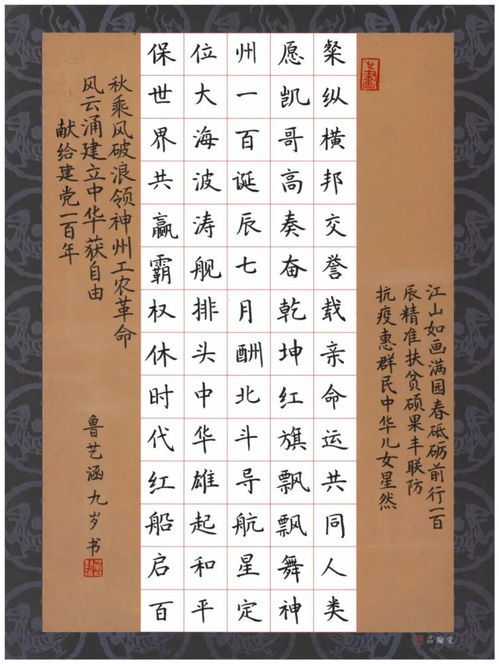 江山如画满园春砥砺前行一百
辰精准扶贫硕果丰联防
抗疫惠群民中华儿女星然
粲纵横邦交誉载亲命运共同人类
愿凯哥高奏奋乾坤红旗飘飘舞神
州一百诞辰七月酬北斗导航星定
位大海波涛舰排头中华雄起和平
保世界共赢霸权休时代红船启百
秋乘风破浪领神州工农革命
风云涌建立中华获自由
献给建党一百年
鲁艺涵九岁书